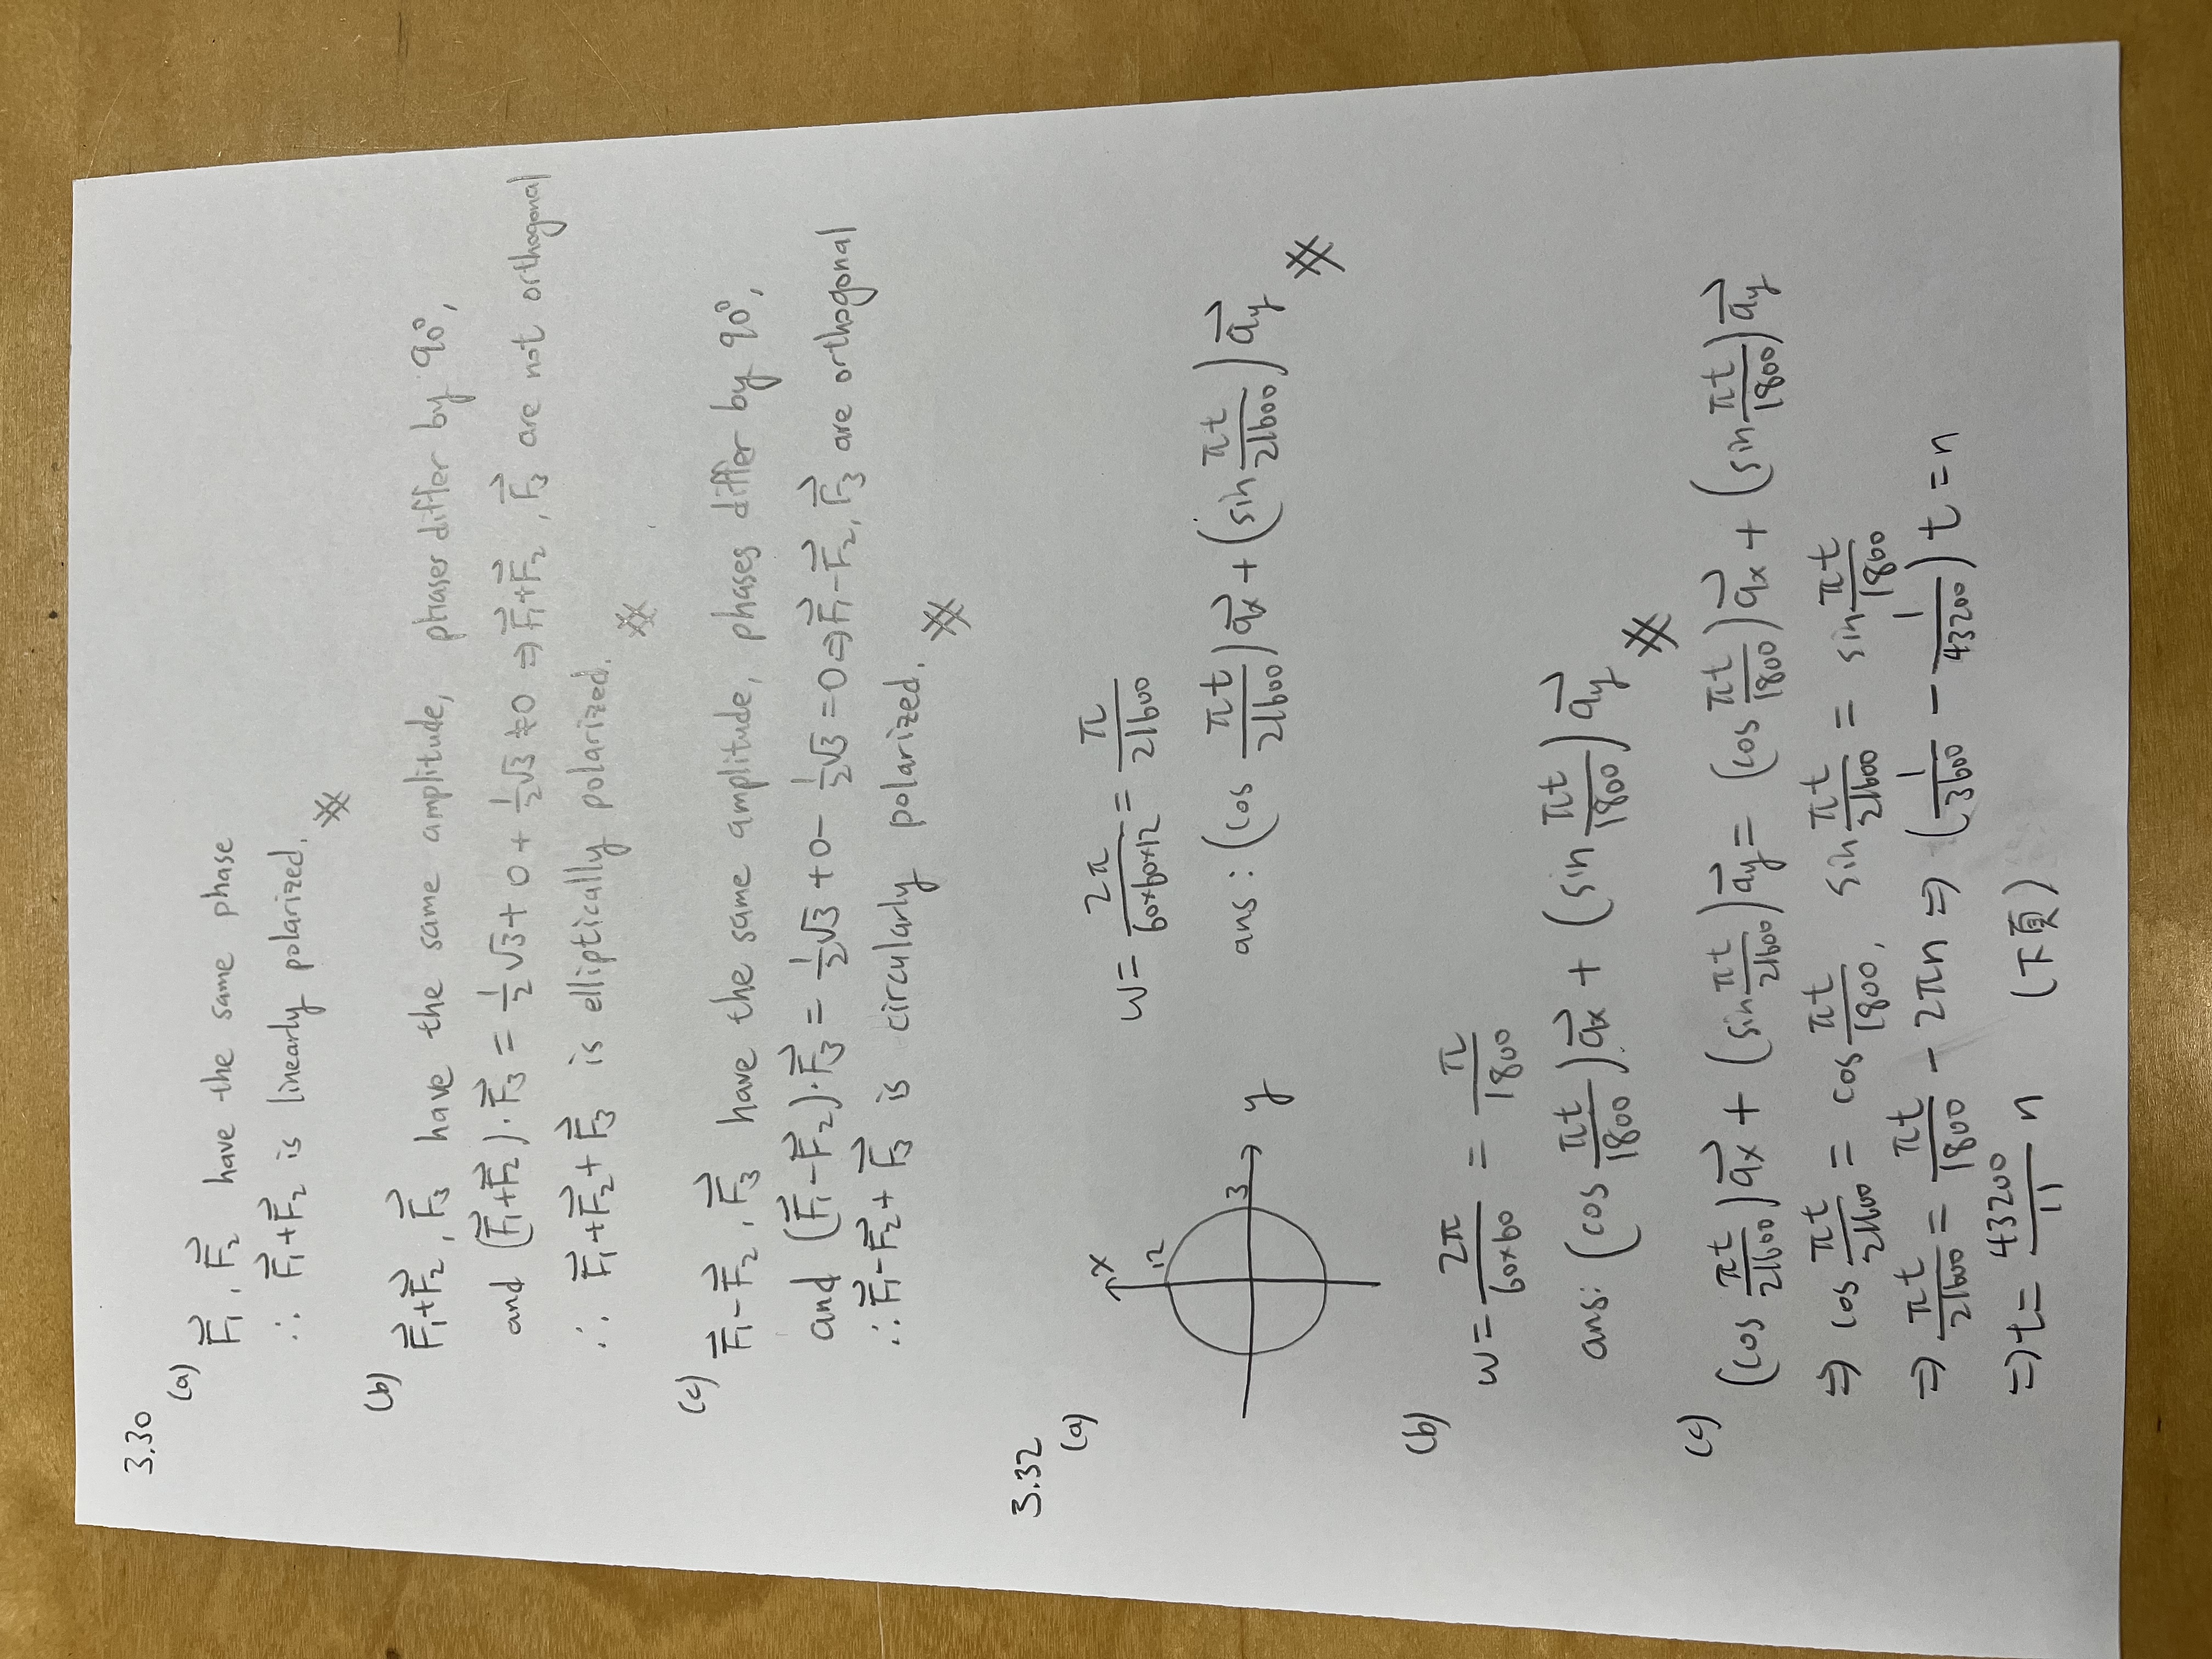 3.30
(a)
F⃗₁, F⃗₂ have the same phase
∴ F⃗₁+F⃗₂ is linearly polarized.
(b)
F⃗₁+F⃗₂, F⃗₃ have the same amplitude, phases differ by 90°,
and (F⃗₁+F⃗₂)·F⃗₃ = 1/2 √3 + 0 + 1/2 √3 ≠ 0 ⇒ F⃗₁+F⃗₂, F⃗₃ are not orthogonal
∴ F⃗₁+F⃗₂+F⃗₃ is elliptically polarized.
(c)
F⃗₁-F⃗₂, F⃗₃ have the same amplitude, phases differ by 90°,
and (F⃗₁-F⃗₂)·F⃗₃ = 1/2 √3 + 0 - 1/2 √3 = 0 ⇒ F⃗₁-F⃗₂, F⃗₃ are orthogonal
∴ F⃗₁-F⃗₂+F⃗₃ is circularly polarized.
3.32
(a)
x
12
3
y
w = 2π/(60×60×12) = π/21600
ans: (cos πt/21600) a⃗x + (sin πt/21600) a⃗y
(b)
w = 2π/(60×60) = π/1800
ans: (cos πt/1800) a⃗x + (sin πt/1800) a⃗y
(c)
(cos πt/21600) a⃗x + (sin πt/21600) a⃗y = (cos πt/1800) a⃗x + (sin πt/1800) a⃗y
⇒ cos πt/21600 = cos πt/1800, sin πt/21600 = sin πt/1800
⇒ πt/21600 = πt/1800 - 2πn ⇒ (1/3600 - 1/43200) t = n
⇒ t = 43200/11 n (下頁)